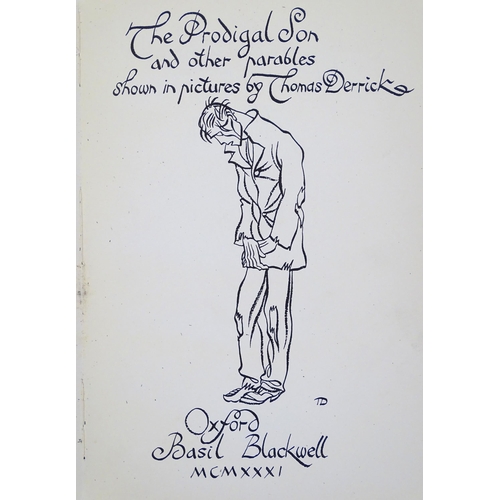 The Prodigal Son
and other parables
shown in pictures by Thomas Derrick
TD
Oxford
Basil Blackwell
MCMXXXI